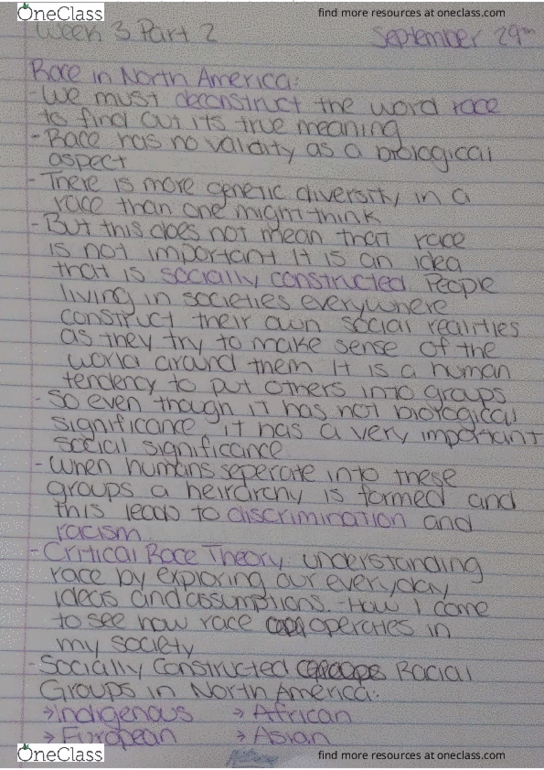 OneClass
find more resources at oneclass.com
Week 3 Part 2 September 29th
Race in North America:
- We must deconstruct the word race
to find out its true meaning
- Race has no validity as a biological
aspect
- There is more genetic diversity in a
race than one might think
- But this does not mean that race
is not important it is an idea
that is socially constructed People
living in societies everywhere
construct their own social realities
as they try to make sense of the
world around them It is a human
tendency to put others into groups
- So even though it has not biological
significance it has a very important
social significance
- When humans seperate into these
groups a heirarchy is formed and
this leads to discrimination and
racism
- Critical Race Theory: understanding
race by exploring our everyday
ideas and assumptions. - How I come
to see how race operates in
my society
- Socially Constructed Racial
Groups in North America:
→ Indigenous → African
→ European → Asian
OneClass
find more resources at oneclass.com